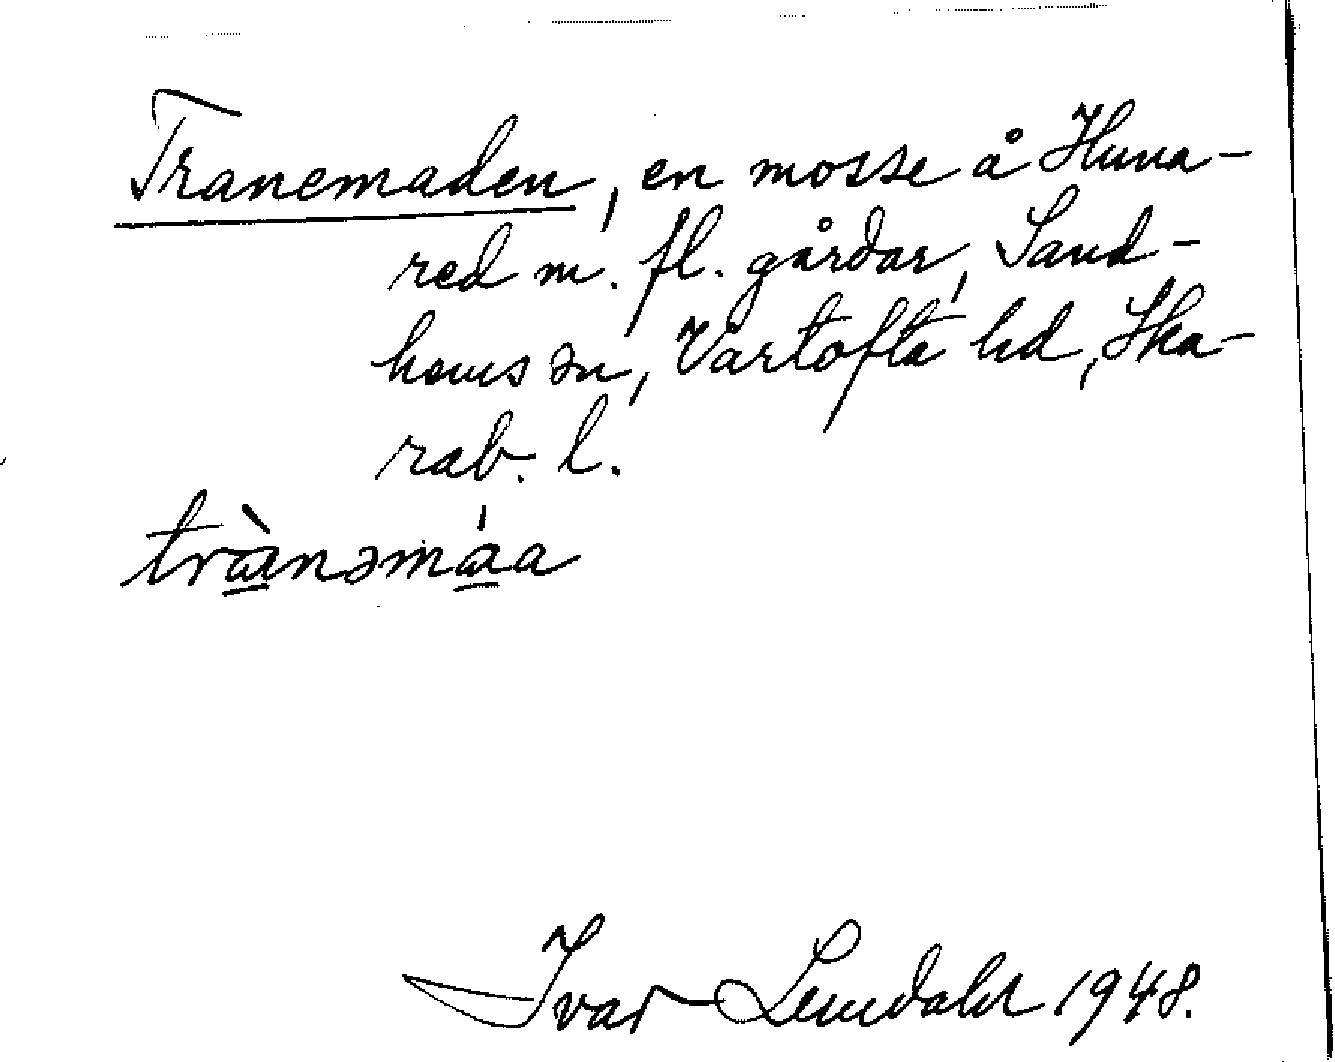 Tranemaden, en mosse å Huna-
red m. fl. gårdar, Sand-
hems sn, Vartofta hd, Ska-
rab. l.
trànəmáa
Ivar Lundahl 1948.